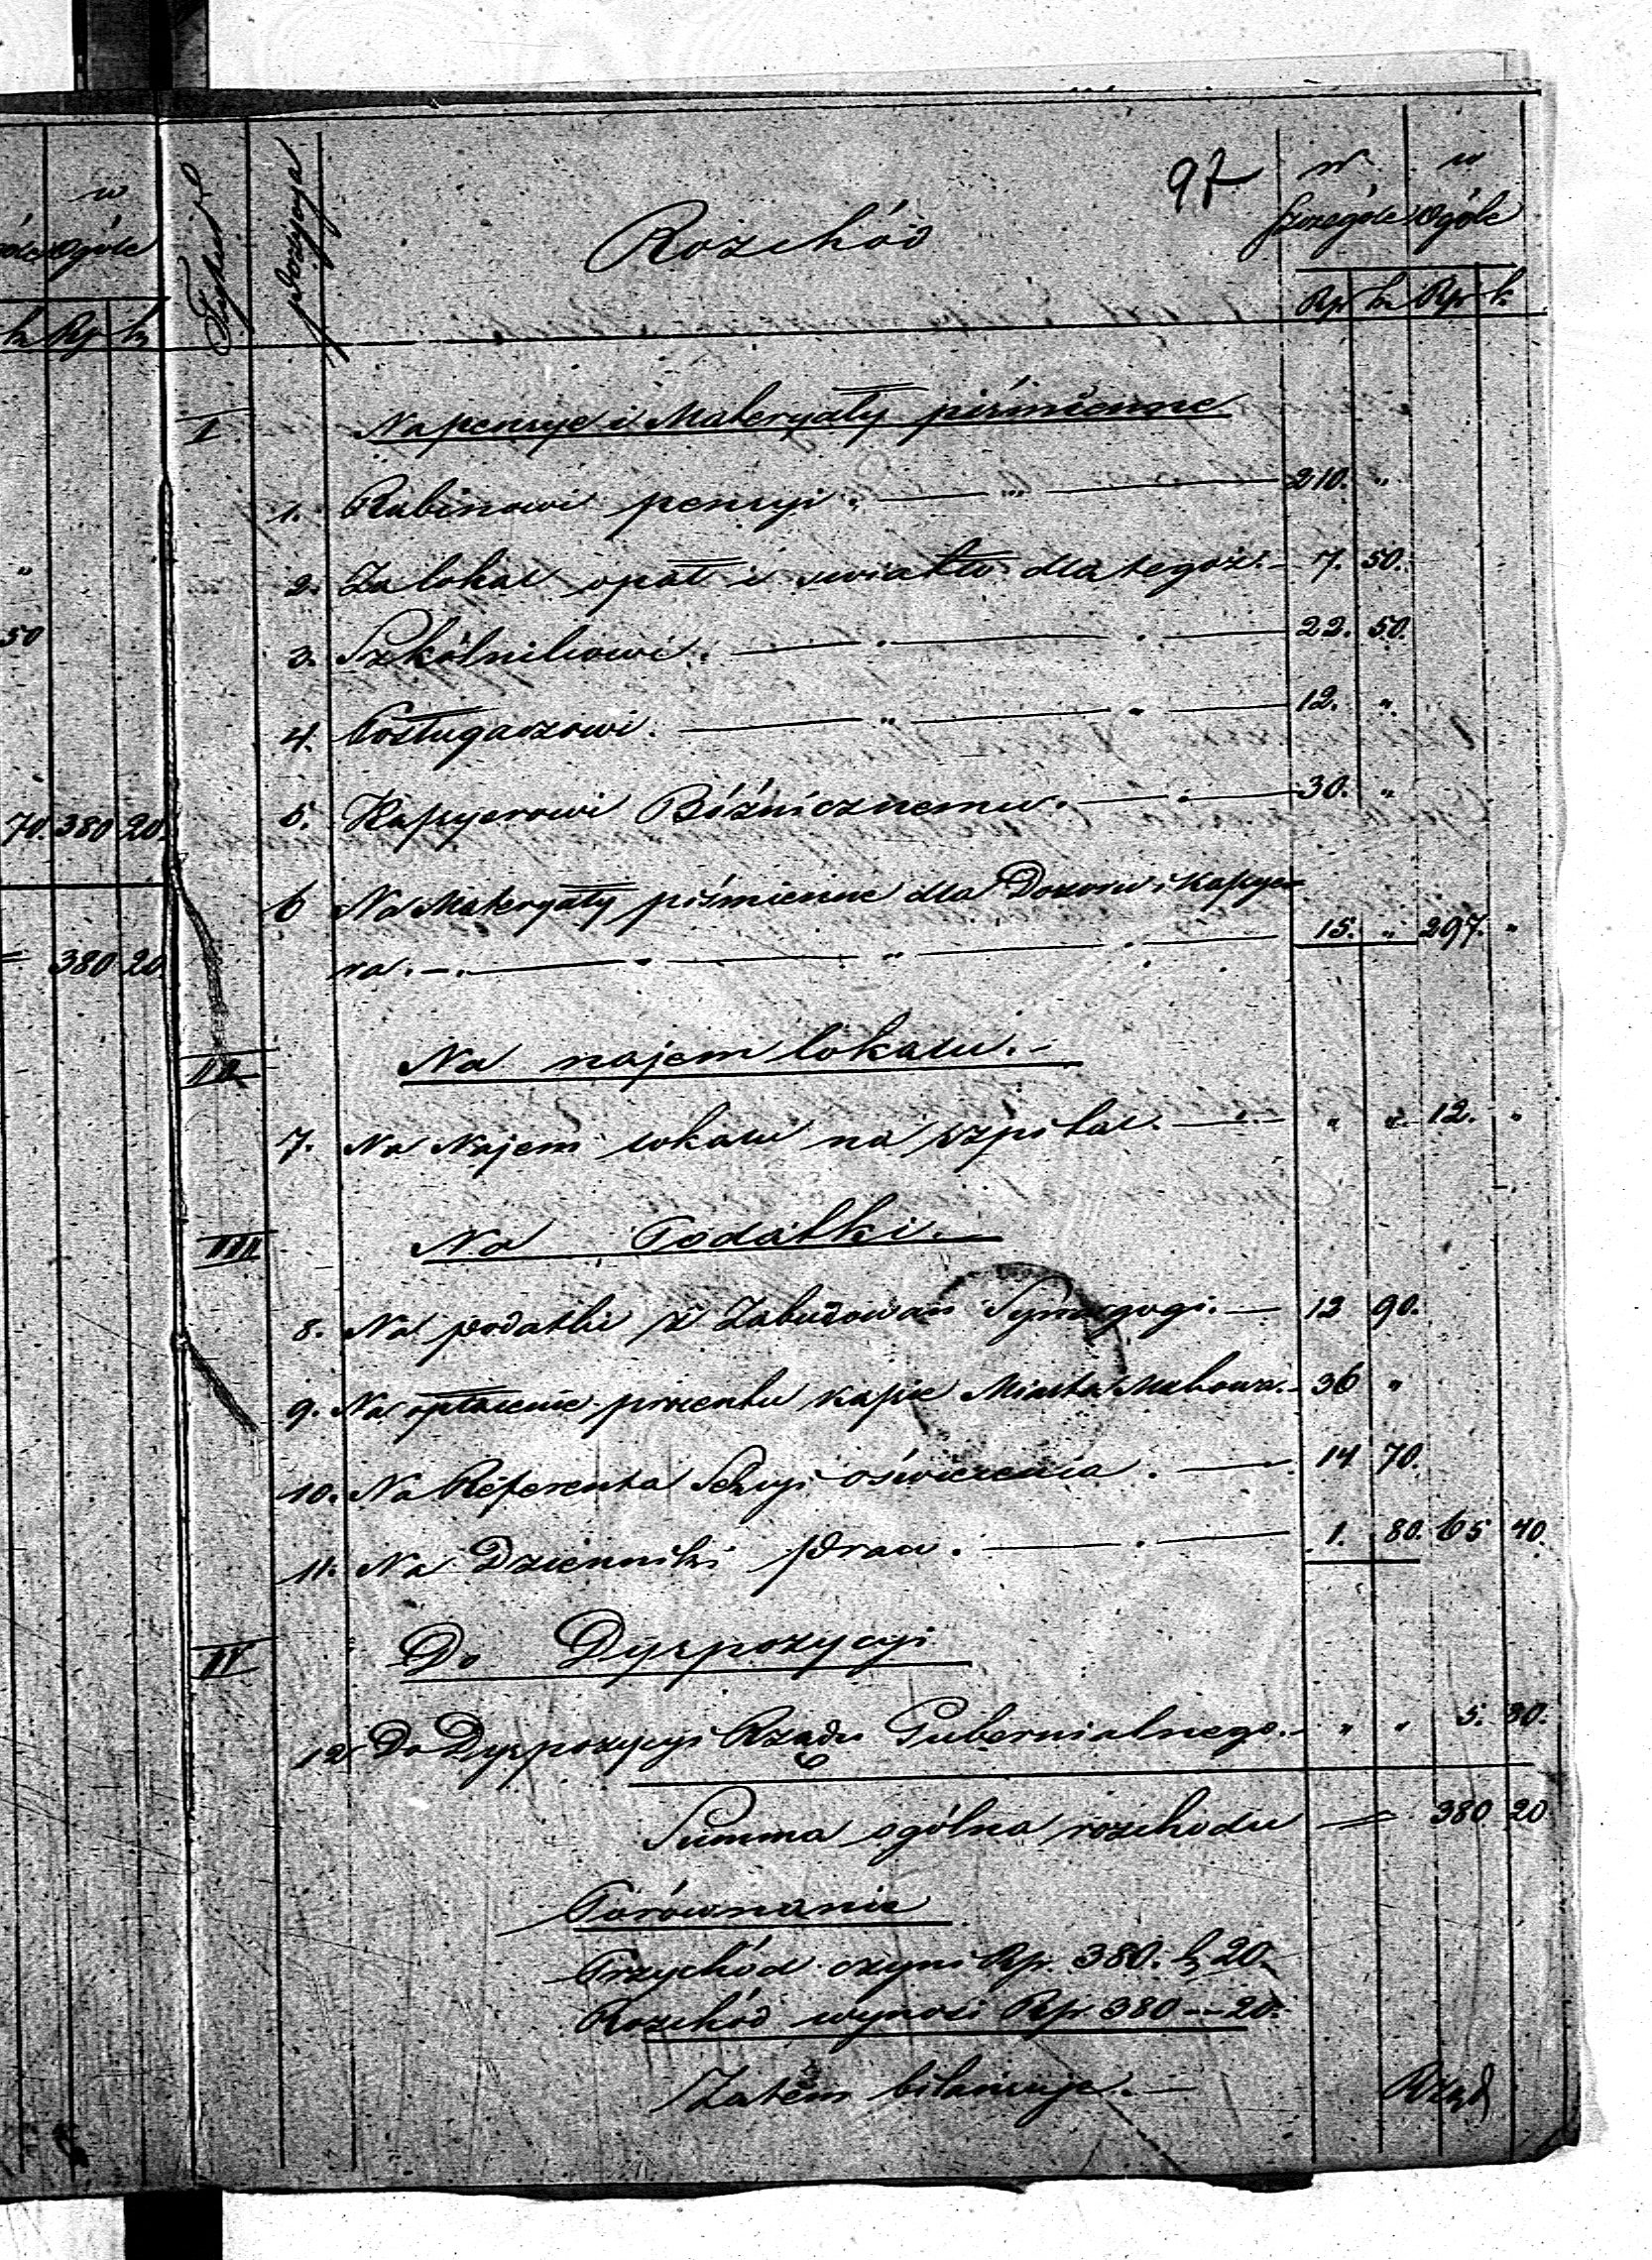 97
w
Ogóle
Rs k
Tytuł
pozycya
Rozchód
w Szczególe
w Ogóle
Rs k Rs k
I Na pensye i Materyały piśmienne
1. Rabinowi pensyi. — " — 210. "
2. Za lokal opał i swiatło dla tegoż. — 7. 50.
3. Szkólnikowi. — 22. 50.
4. Posługaczowi. — " — " — 12. "
5. Kassyerowi Bóżnicznemu. — 30. "
6 Na Materyały piśmienne dla Dozoru i Kassye=
ra. — " — " — 15. " 297. "
II Na najem lokalu. —
7. Na Najem lokalu na szpital. — " " 12. "
III Na Podatki. —
8. Na podatki z Zabudowań Synagogi. — 12 90.
9. Na opłacenie procentu kassie Miasta — 36 "
10. Na Referenta Sekcyi oświecenia. — 14 70.
11. Na Dzienniki Praw. — 1. 80. 65 40.
IV Do Dyspozycyi
12 Do Dyspozycyi Rządu Gubernialnego. — " " 5. 80.
Summa ogólna rozchodu = 380 20
Porównanie
Przychód czyni Rs. 380. k 20.
Rozchód wynosi Rs. 380 -- 20.
Zatem bilansuje. —
Rząd
50
70. 380 20.
= 380 20